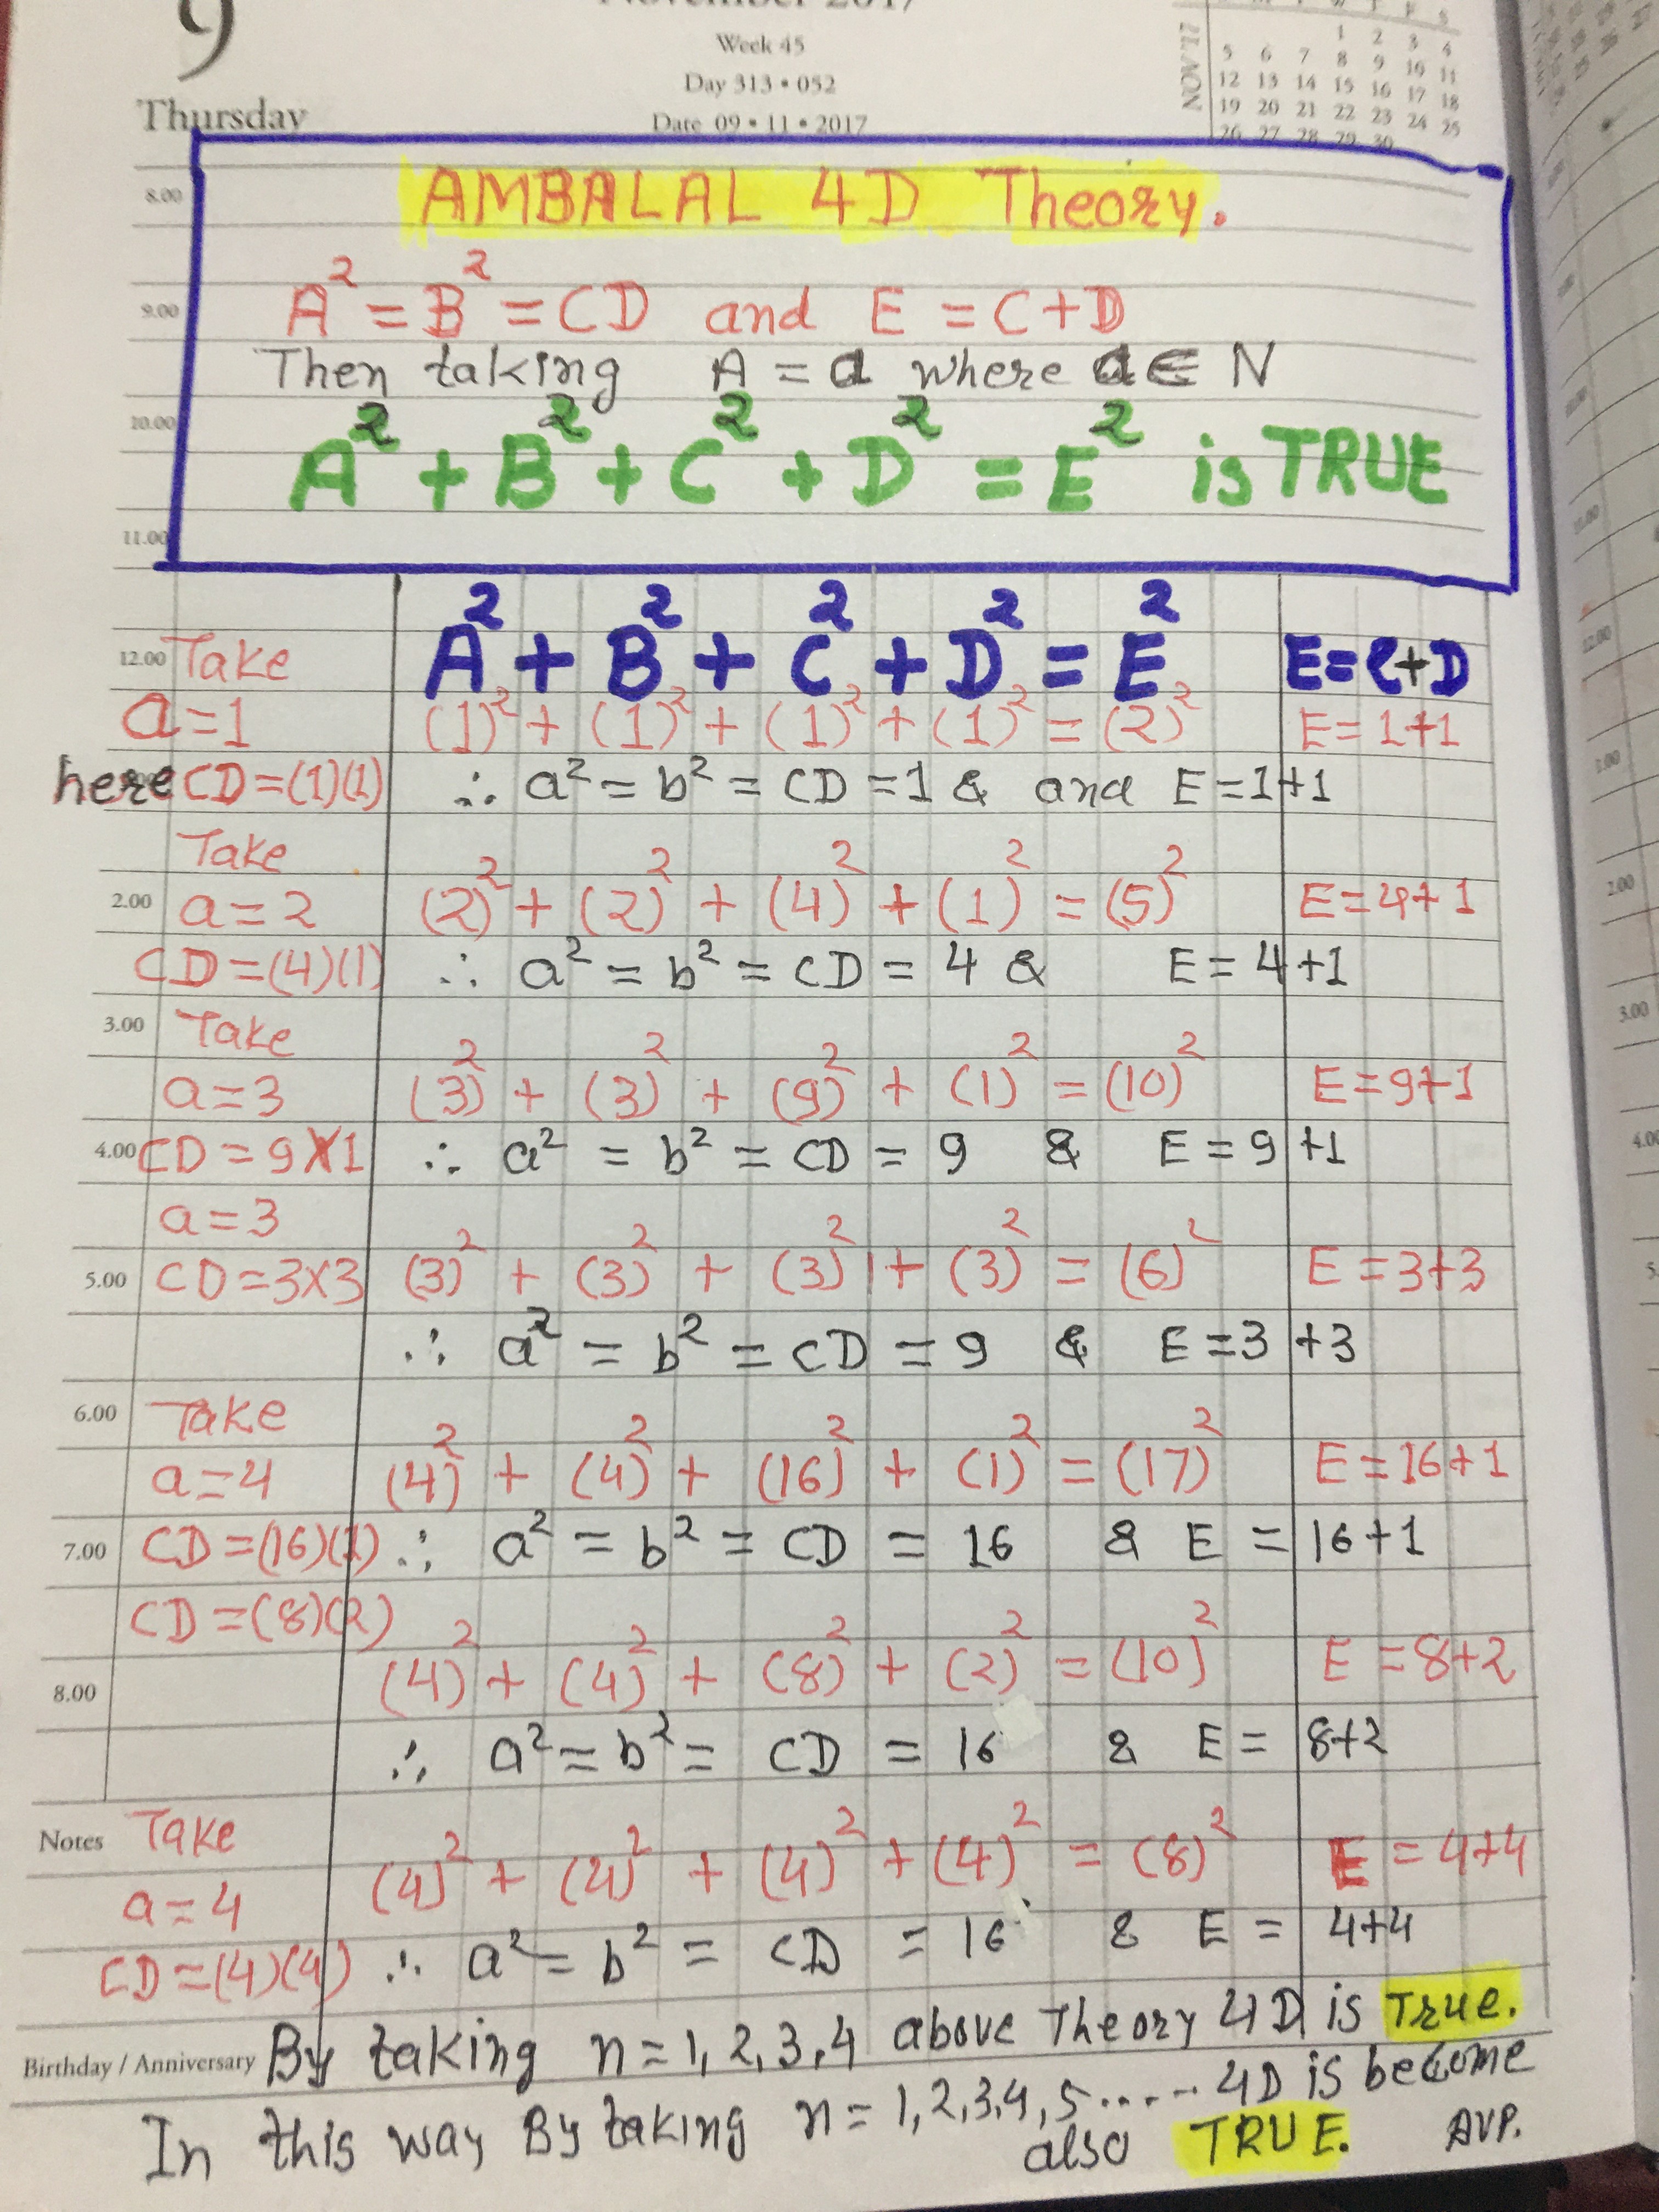 9
November 2017
Week 45
Day 313 • 052
Date 09 • 11 • 2017
Thursday
NOV '17
1 2 3 4
5 6 7 8 9 10 11
12 13 14 15 16 17 18
19 20 21 22 23 24 25
26 27 28 29 30
8.00 AMBALAL 4D Theory.
9.00 A² = B² = CD and E = C+D
Then taking A = a where a ∈ N
10.00 A² + B² + C² + D² = E² is TRUE
11.00
12.00 Take A² + B² + C² + D² = E² E=C+D
a=1 (1)² + (1)² + (1)² + (1)² = (2)² E=1+1
here CD=(1)(1) ∴ a² = b² = CD =1 & and E=1+1
Take
2.00 a=2 (2)² + (2)² + (4)² + (1)² = (5)² E=4+1
CD=(4)(1) ∴ a² = b² = CD = 4 & E=4+1
3.00 Take
a=3 (3)² + (3)² + (9)² + (1)² = (10)² E=9+1
4.00 CD=9X1 ∴ a² = b² = CD = 9 & E=9+1
a=3
5.00 CD=3X3 (3)² + (3)² + (3)² + (3)² = (6)² E=3+3
∴ a² = b² = CD = 9 & E=3+3
6.00 Take
a=4 (4)² + (4)² + (16)² + (1)² = (17)² E=16+1
7.00 CD=(16)(1) ∴ a² = b² = CD = 16 & E = 16+1
CD=(8)(2)
8.00 (4)² + (4)² + (8)² + (2)² = (10)² E=8+2
∴ a² = b² = CD = 16 & E = 8+2
Notes Take
a=4 (4)² + (4)² + (4)² + (4)² = (8)² E=4+4
CD=(4)(4) ∴ a² = b² = CD = 16 & E = 4+4
Birthday / Anniversary By taking n=1,2,3,4 above Theory 4D is True.
In this way By taking n=1,2,3,4,5..... 4D is become
also TRUE. AVP.